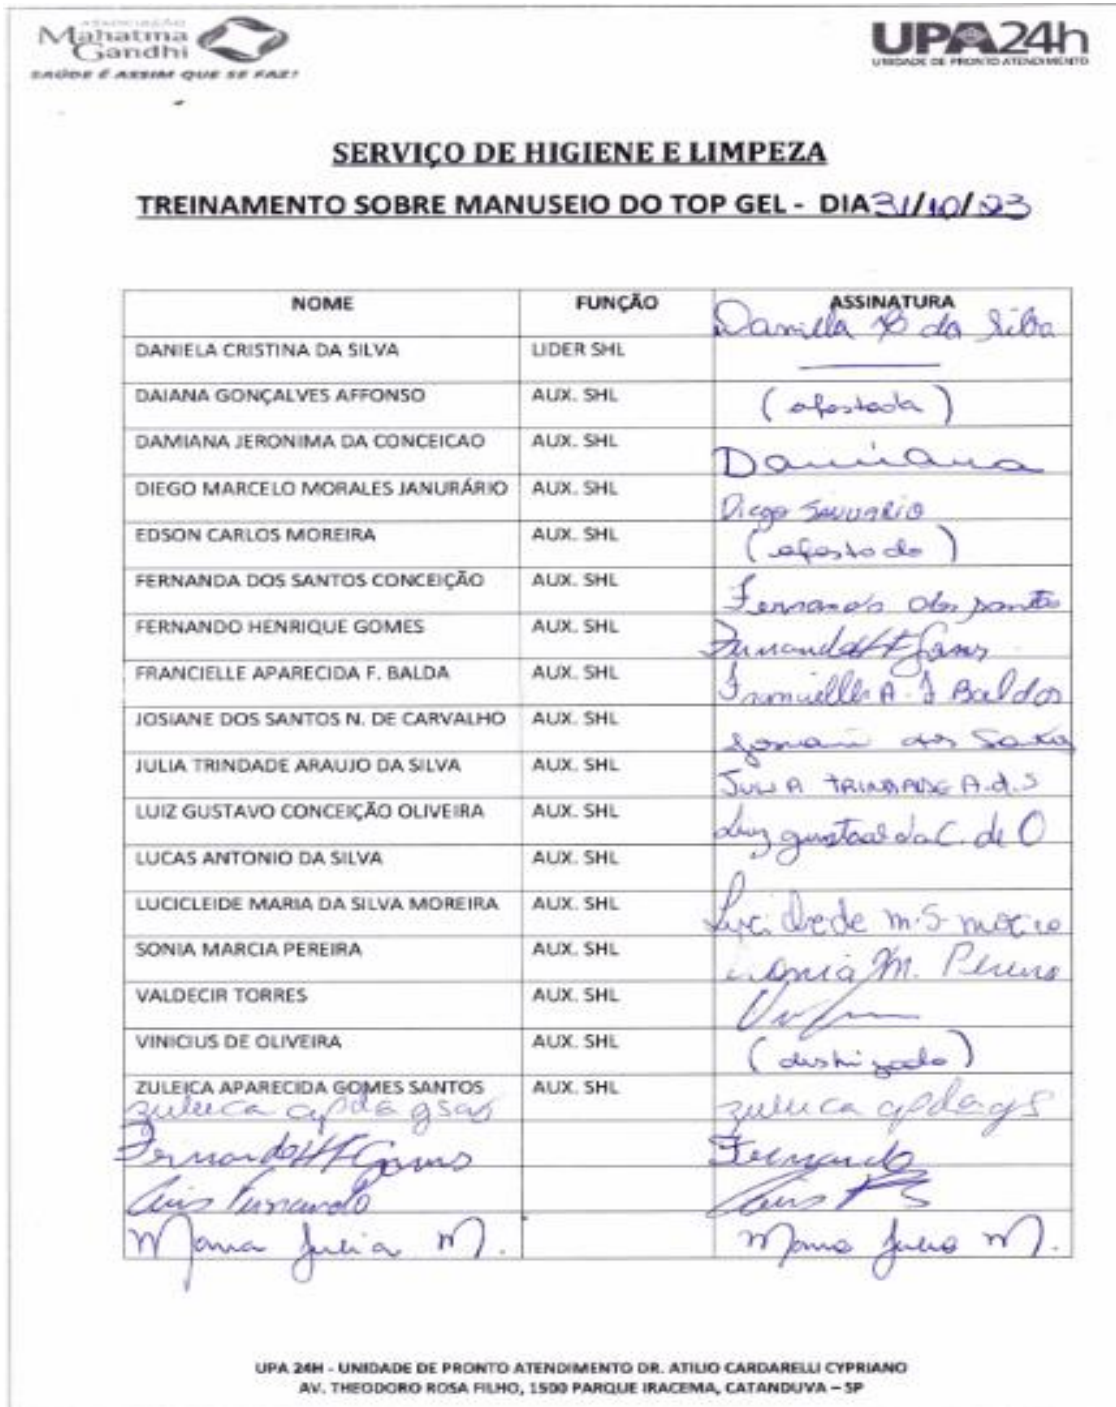 ASSOCIAÇÃO
Mahatma
Gandhi
SAÚDE É ASSIM QUE SE FAZ!
UPA24h
UNIDADE DE PRONTO ATENDIMENTO
SERVIÇO DE HIGIENE E LIMPEZA
TREINAMENTO SOBRE MANUSEIO DO TOP GEL - DIA 31/10/23
NOME FUNÇÃO ASSINATURA
DANIELA CRISTINA DA SILVA LIDER SHL Daniella C da Silva
DAIANA GONÇALVES AFFONSO AUX. SHL (afastada)
DAMIANA JERONIMA DA CONCEICAO AUX. SHL Damiana
DIEGO MARCELO MORALES JANURÁRIO AUX. SHL Diego Januario
EDSON CARLOS MOREIRA AUX. SHL (afastado)
FERNANDA DOS SANTOS CONCEIÇÃO AUX. SHL Fernanda dos Santos
FERNANDO HENRIQUE GOMES AUX. SHL Fernando H Gomes
FRANCIELLE APARECIDA F. BALDA AUX. SHL Francielle A. F Baldos
JOSIANE DOS SANTOS N. DE CARVALHO AUX. SHL dos Santos
JULIA TRINDADE ARAUJO DA SILVA AUX. SHL JULIA TRINDADE A.d.S
LUIZ GUSTAVO CONCEIÇÃO OLIVEIRA AUX. SHL Luiz da C. de O
LUCAS ANTONIO DA SILVA AUX. SHL
LUCICLEIDE MARIA DA SILVA MOREIRA AUX. SHL m.S
SONIA MARCIA PEREIRA AUX. SHL Sonia M. Pereira
VALDECIR TORRES AUX. SHL
VINICIUS DE OLIVEIRA AUX. SHL
ZULEICA APARECIDA GOMES SANTOS AUX. SHL
zuleica apda zuleica apda gs
Fernando H Gomes Fernando
Luis Fernando Luis
Maria Julia M. Maria Julia M.
UPA 24H - UNIDADE DE PRONTO ATENDIMENTO DR. ATILIO CARDARELLI CYPRIANO
AV. THEODORO ROSA FILHO, 1500 PARQUE IRACEMA, CATANDUVA – SP